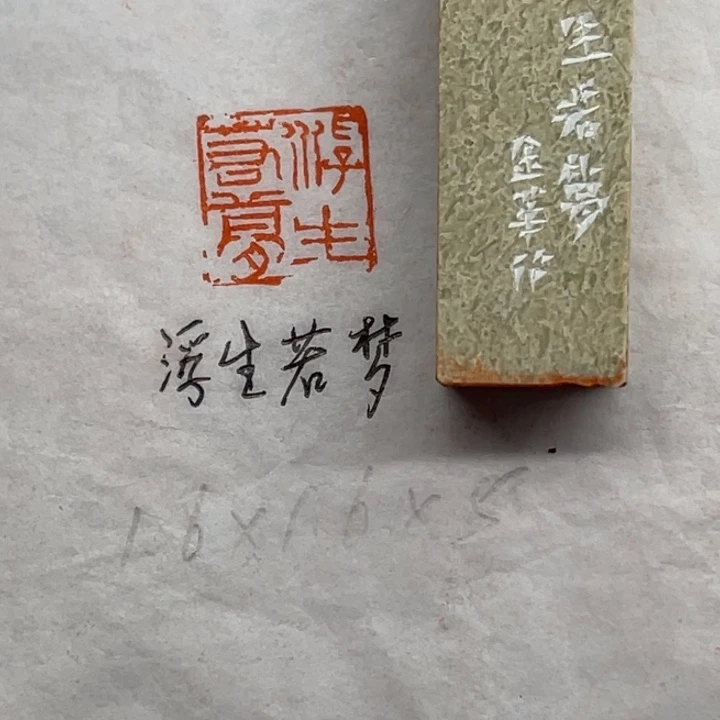 浮生若梦
浮生若梦
1.6×1.6×5
生若梦
金华作